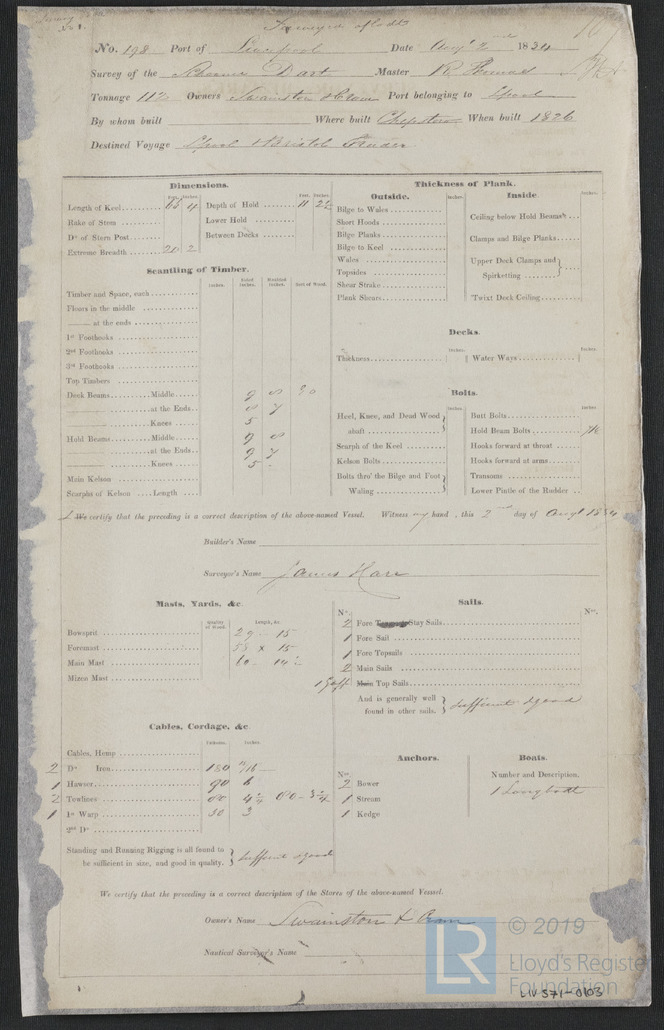 Surveyed afloat
No. 198 Port of Liverpool Date Augt 2nd 1834
Survey of the Schooner Dart Master R Thomas
Tonnage 112 Owners Swainston & Cram Port belonging to Lpool
By whom built Where built Chepstow When built 1826
Destined Voyage Lpool & Bristol Trader
Dimensions.
Feet. Inches.
Length of Keel 65 4
Rake of Stem
Do of Stern Post
Extreme Breadth 20 2
Feet. Inches.
Depth of Hold 11 2½
Lower Hold
Between Decks
Thickness of Plank.
Outside. Inches.
Bilge to Wales
Short Hoods
Bilge Planks
Bilge to Keel
Wales
Topsides
Shear Strake
Plank Shears
Inside Inches.
Ceiling below Hold Beams
Clamps and Bilge Planks
Upper Deck Clamps and
Spirketting
'Twixt Deck Ceiling
Scantling of Timber.
Inches. Sided Inches. Moulded Inches. Sort of Wood
Timber and Space, each
Floors in the middle
—— at the ends
1st Foothooks
2nd Foothooks
3rd Foothooks
Top Timbers
Deck Beams Middle 9 8
at the Ends 8 7
Knees 5
Hold Beams Middle 9 8
at the Ends 9 7
Knees 5
Main Kelson
Scarphs of Kelson Length
Decks.
Inches.
Thickness
Inches.
Water Ways
Bolts.
Inches.
Heel, Knee, and Dead Wood
shaft
Scarph of the Keel
Kelson Bolts
Bolts thro' the Bilge and Foot
Waling
Inches.
Butt Bolts
Hold Beam Bolts
Hooks forward at throat
Hooks forward at arms
Transoms
Lower Pintle of the Rudder
I We certify that the preceding is a correct description of the above-named Vessel. Witness my hand, this 2nd day of Augt 1834
Builder's Name
Surveyor's Name James Karr
Masts, Yards, &c
Quality of Wood. Length, &c.
Bowsprit 29 – 15
Foremast 53 x 15
Main Mast 60 – 14½
Mizen Mast
Sails.
No. No.
2 Fore Stay Sails
1 Fore Sail
1 Fore Topsails
2 Main Sails
1 Gaff Main Top Sails
And is generally well
found in other sails. sufficient & good
Cables, Cordage, &c
Fathoms. Inches.
Cables, Hemp
2 Do Iron 180
1 Hawser 90 6
2 Towlines 80 4½ 80 – 3¾
1 1st Warp 30 3
2nd Do
Standing and Running Rigging is all found to
be sufficient in size, and good in quality. sufficient & good
Anchors.
No.
2 Bower
1 Stream
1 Kedge
Boats.
Number and Description.
1 Longboat
We certify that the preceding is a correct description of the Stores of the above-named Vessel.
Owner's Name Swainston & Cram
Nautical Surveyor's Name
LR © 2019
Lloyd's Register
Foundation
LIV 571-0103